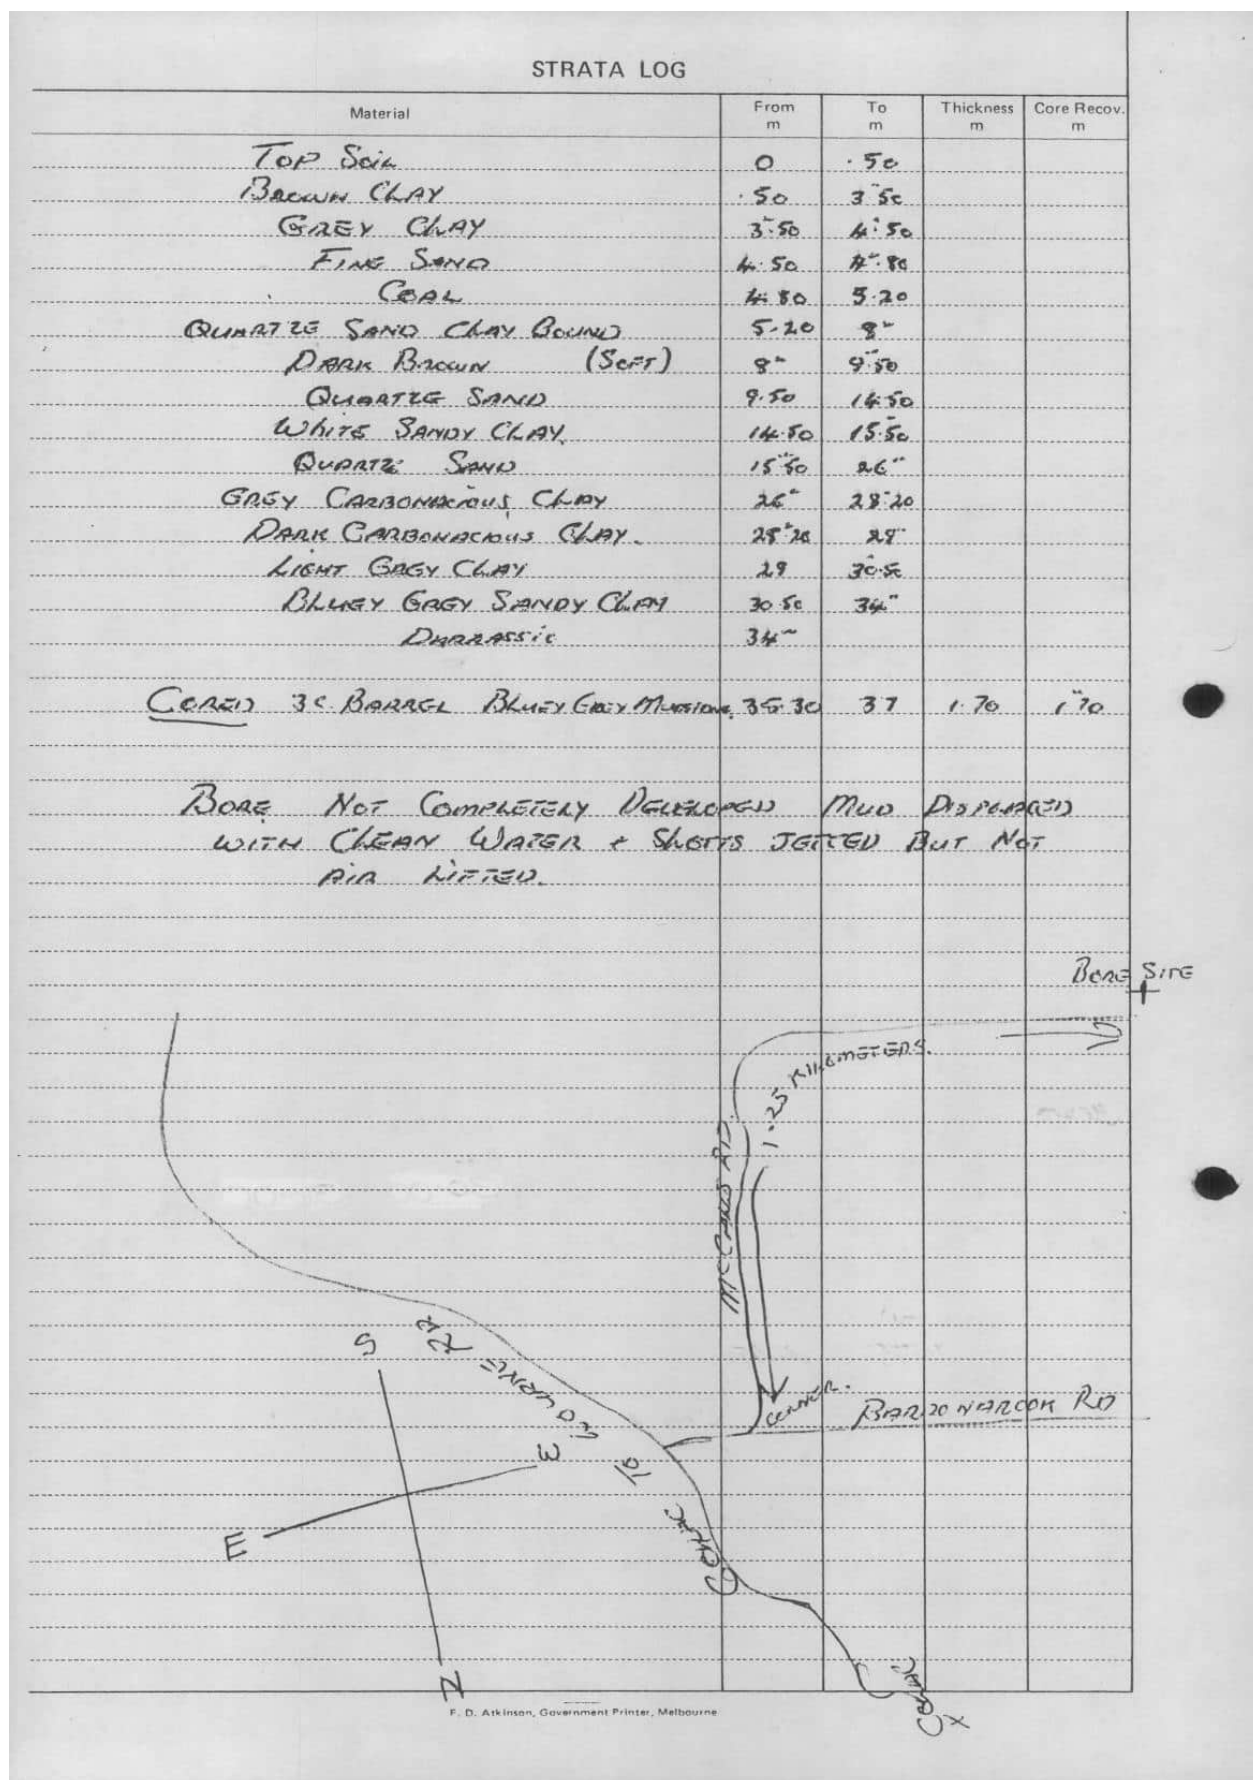 STRATA LOG
Material From m To m Thickness m Core Recov. m
TOP SOIL 0 .50
BROWN CLAY .50 3.50
GREY CLAY 3.50 4.50
FINE SAND 4.50 4.80
COAL 4.80 5.20
QUARTZE SAND CLAY BOUND 5.20 8-
DARK BROWN (SOFT) 8- 9.50
QUARTZE SAND 9.50 14.50
WHITE SANDY CLAY. 14.50 15.50
QUARTZE SAND 15.50 26-
GREY CARBONACIOUS CLAY 26- 28.20
DARK CARBONACIOUS CLAY. 28.20 29
LIGHT GREY CLAY 29 30.50
BLUEY GREY SANDY CLAY 30.50 34-
DURRASSIC 34-
CORED 3C BARREL BLUEY GREY MUDSTONE. 35.30 37 1.70 1.70
BORE NOT COMPLETELY DEVELOPED MUD DISPLACED
WITH CLEAN WATER + SLOTTS JETTED BUT NOT
AIR LIFTED.
BORE SITE
1.25 KILOMETERS.
MCCANS RD.
S
RR
CORNER.
BARRONAROOK RD
W
TO
E
COLAC
N
COLAC
X
F. D. Atkinson, Government Printer, Melbourne